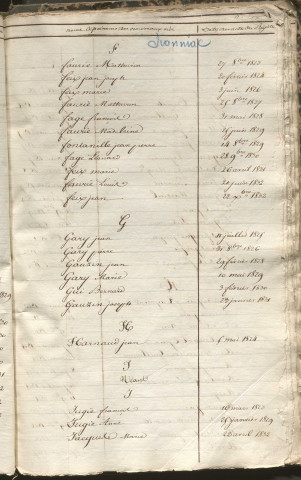 Lionniac
F
faurie Mathurin 27 8bre 1823
faix jean joseph 20 février 1824
faix marie 3 juin 1826
faurie Mathurin 25 8bre 1827
fage françois 30 mai 1828
faurie Madeleine 26 juin 1829
fontanille jean pierre 14 8bre 1829
fage Léonard 1830
faix marie 26 avril 1831
faurie Louise 20 juin 1832
faix jean 22 1832
G
Gary jean 11 juillet 1825
Gary pierre 31 8bre 1826
Gautier jean 29 février 1828
Gary Marie 10 mai 1829
Gue Bernard 3 février 1830
Gautier joseph 29 janvier 1831
H
Harnaud jean 5 mai 1824
I
Néant
J
Jugie françois 16 mars 1823
Jugie Anne 25 janvier 1829
Jacquete Marie 26 avril 1832